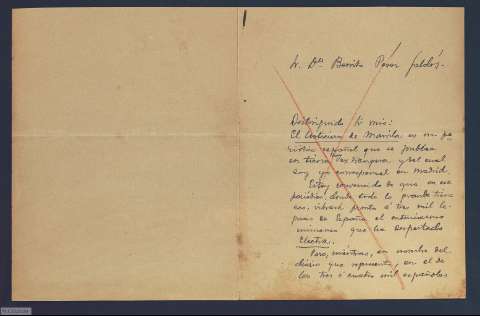 Sr. Dn. Benito Pérez Galdós.
Distinguido Sr. mío:
El Noticiero de Manila es un pe-
riódico español que se publica
en tierra extranjera y del cual
soy yo corresponsal en Madrid.
Estoy convencido de que en ese
periódico, donde todo lo grande tiene
eco, vibrará pronto á tres mil le-
guas de España el entusiasmo
inmenso que ha despertado
Electra.
Pero, mientras, en nombre del
diario que represento, en el de
los tres ó cuatro mil españoles